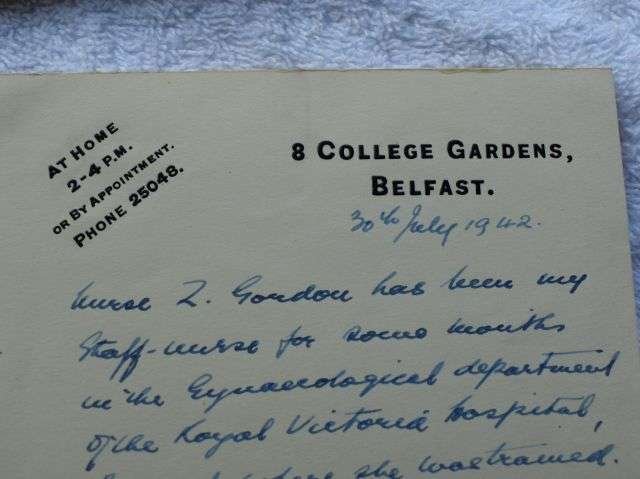 AT HOME
2-4 P.M.
OR BY APPOINTMENT.
PHONE 25048.
8 COLLEGE GARDENS,
BELFAST.
30th July 1942.
Nurse Z. Gordon has been my
Staff-nurse for some months
in the Gynaecological department
of the Royal Victoria Hospital,
before she was trained.